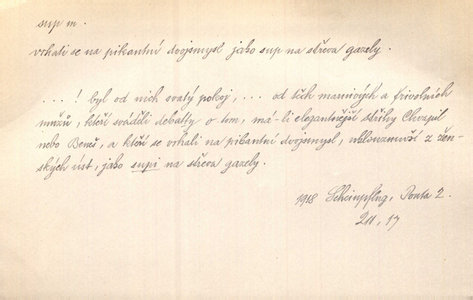 sup m.
vrhati se na pikantní dvojsmysl jako sup na střeva gazely.
. . . ! byl od nich svatý pokoj, . . . od těch marnivých a frivolních
mužů, kteří sváděli debatty o tom, má-li elegantnější střihy Chvapil
nebo Beneš, a kteří se vrhali na pikantní dvojsmysl, uklouznuvší z žen-
ských úst, jako supi na střeva gazely.
1918 Scheinpflug, Ponta 2.
211, 17